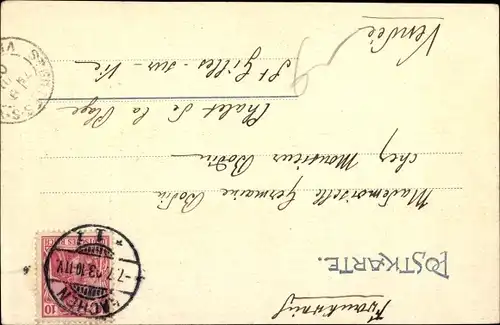 POSTKARTE.
Mademoiselle Germaine Bodin
chez Monsieur Bodin
Chalet de la Plage
St Gilles-sur-Vie
Vendée
AACHEN
7.7.03.10-11V.
* 1 1
10